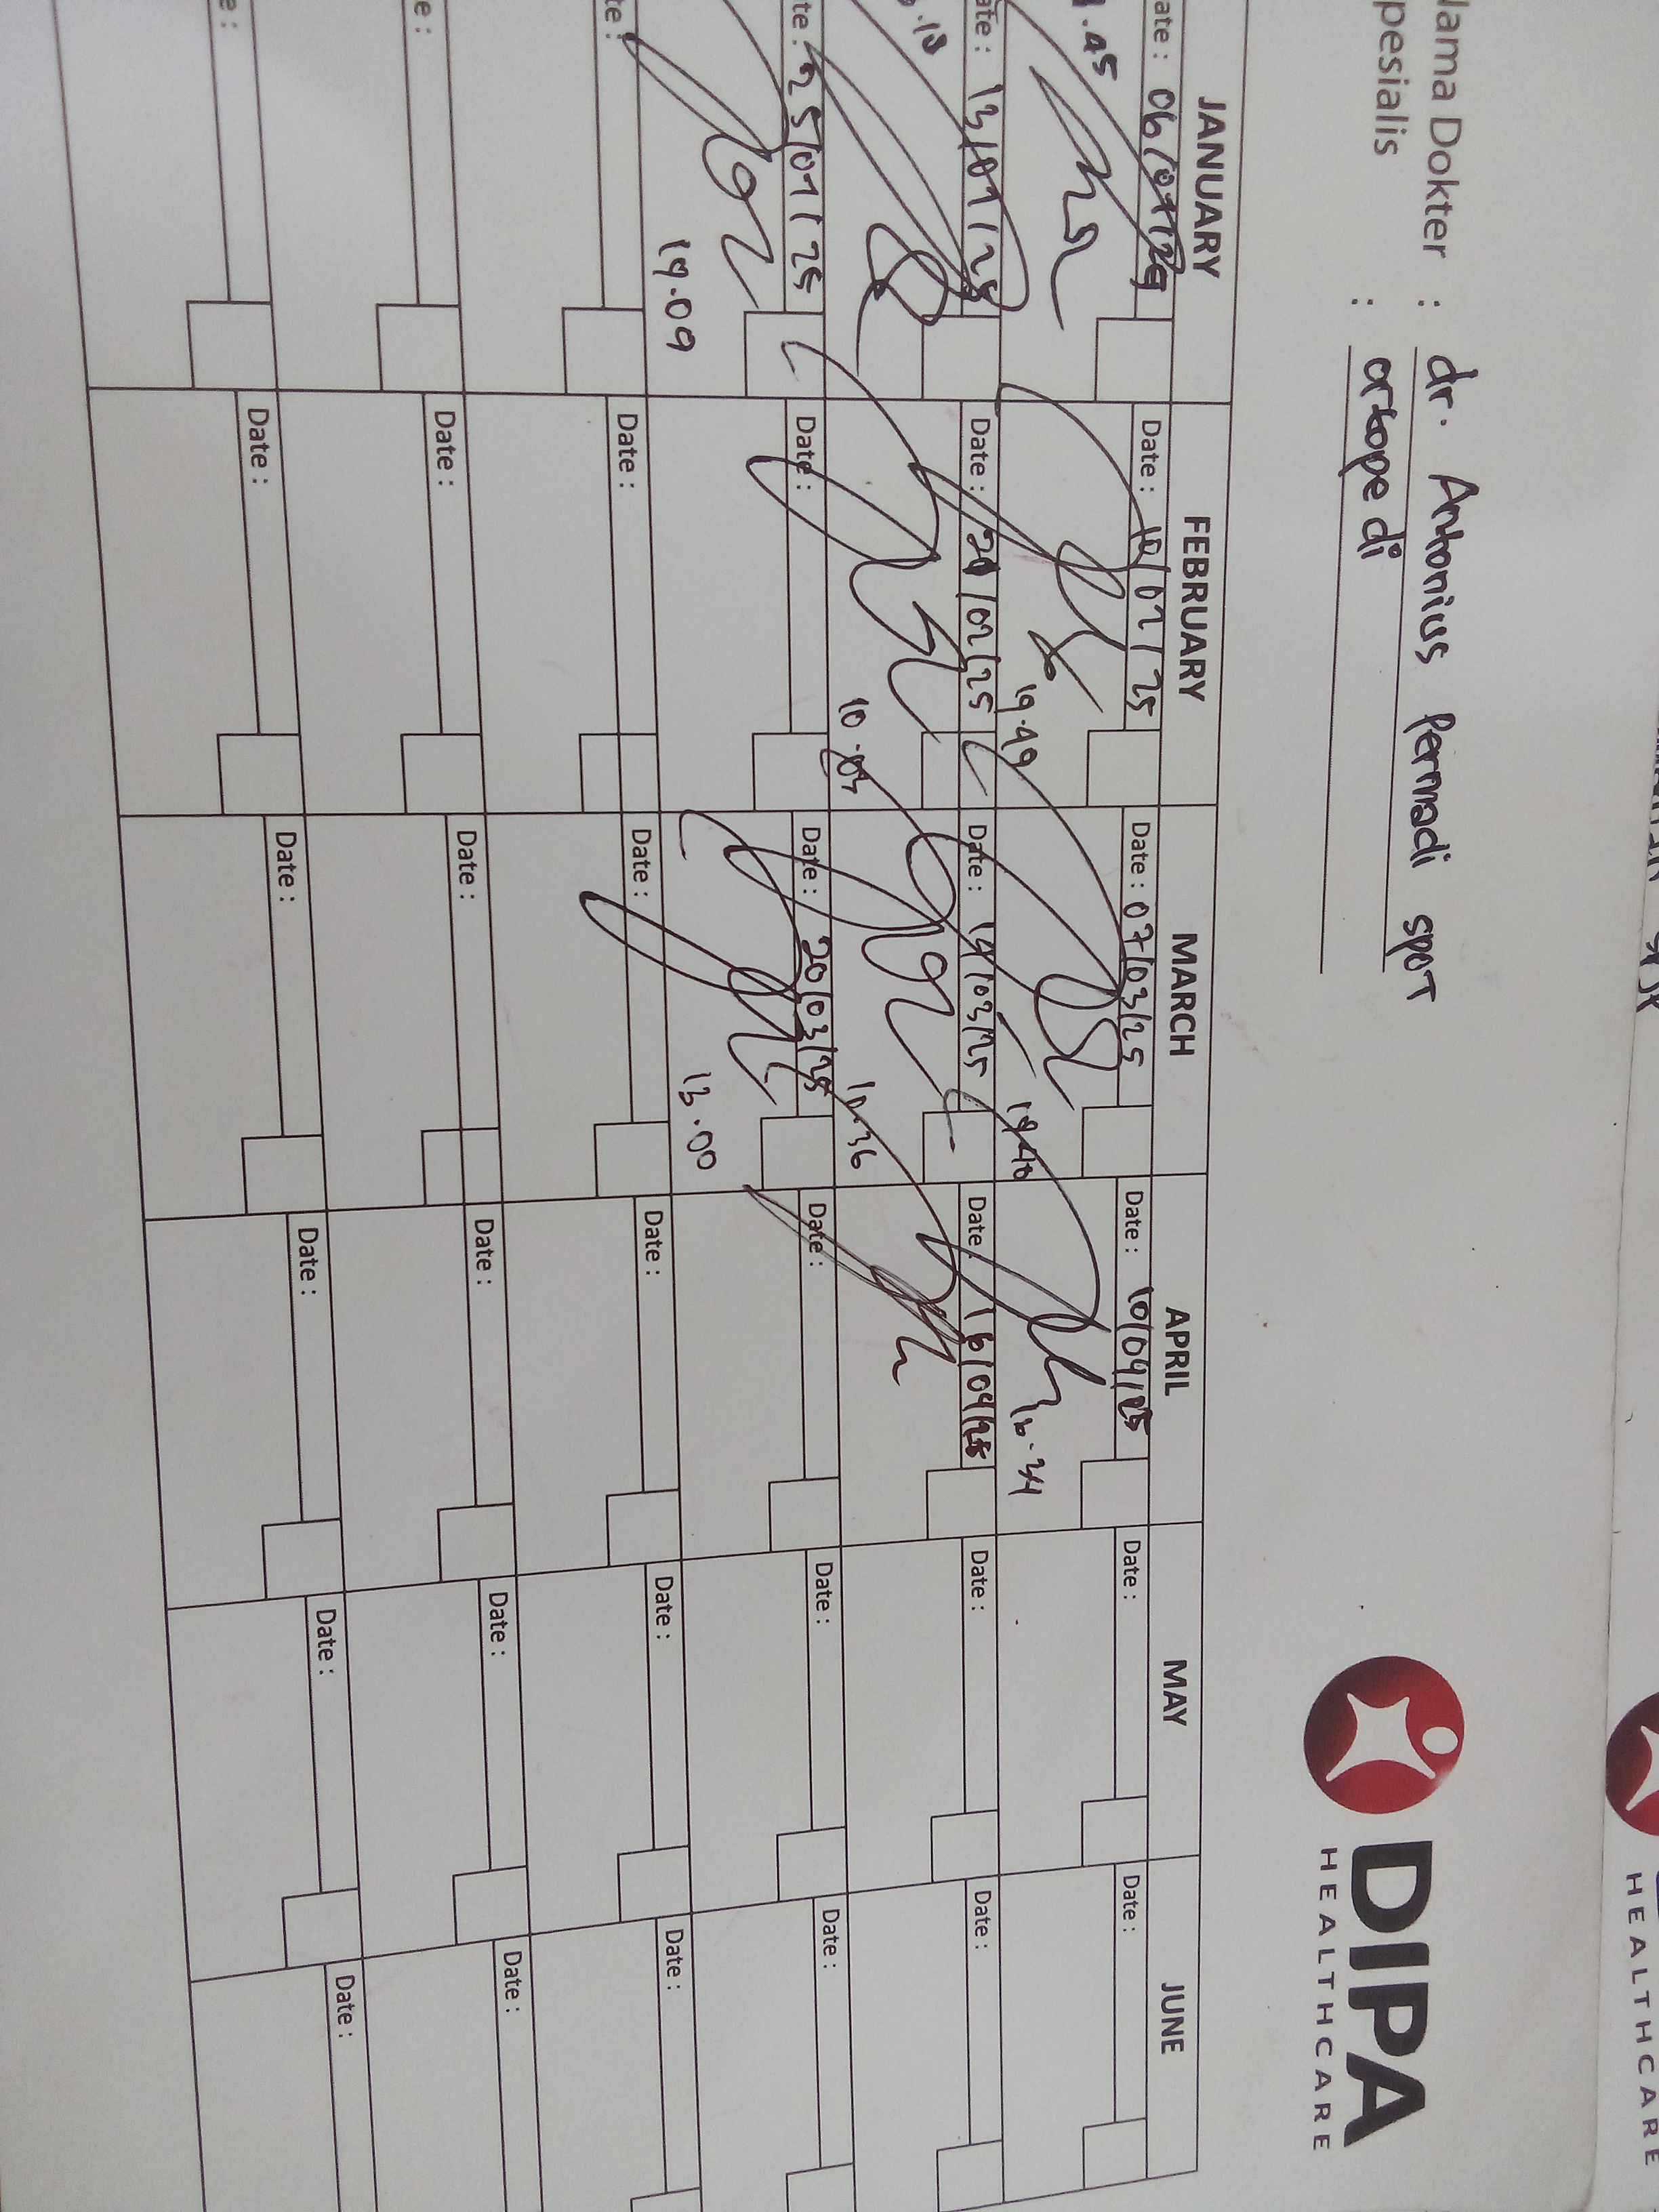 DIPA
HEALTHCARE
lama Dokter : dr. Antonius Permadi SPOT
pesialis : ortopedi
JANUARY FEBRUARY MARCH APRIL MAY JUNE
ate : 06/01/25 Date : 10/02/25 Date : 07/03/25 Date : 10/04/25 Date : Date :
.45 19.49 19.40 16.34
ate : 13/01/25 Date : 20/02/25 Date : 14/03/25 Date : 16/04/25 Date : Date :
.18 10.07 10.36
te : 25/01/25 Date : Date : 20/03/25 Date : Date : Date :
19.09 13.00
te : Date : Date : Date : Date : Date :
e : Date : Date : Date : Date : Date :
e : Date : Date : Date : Date : Date :
HEALTHCARE